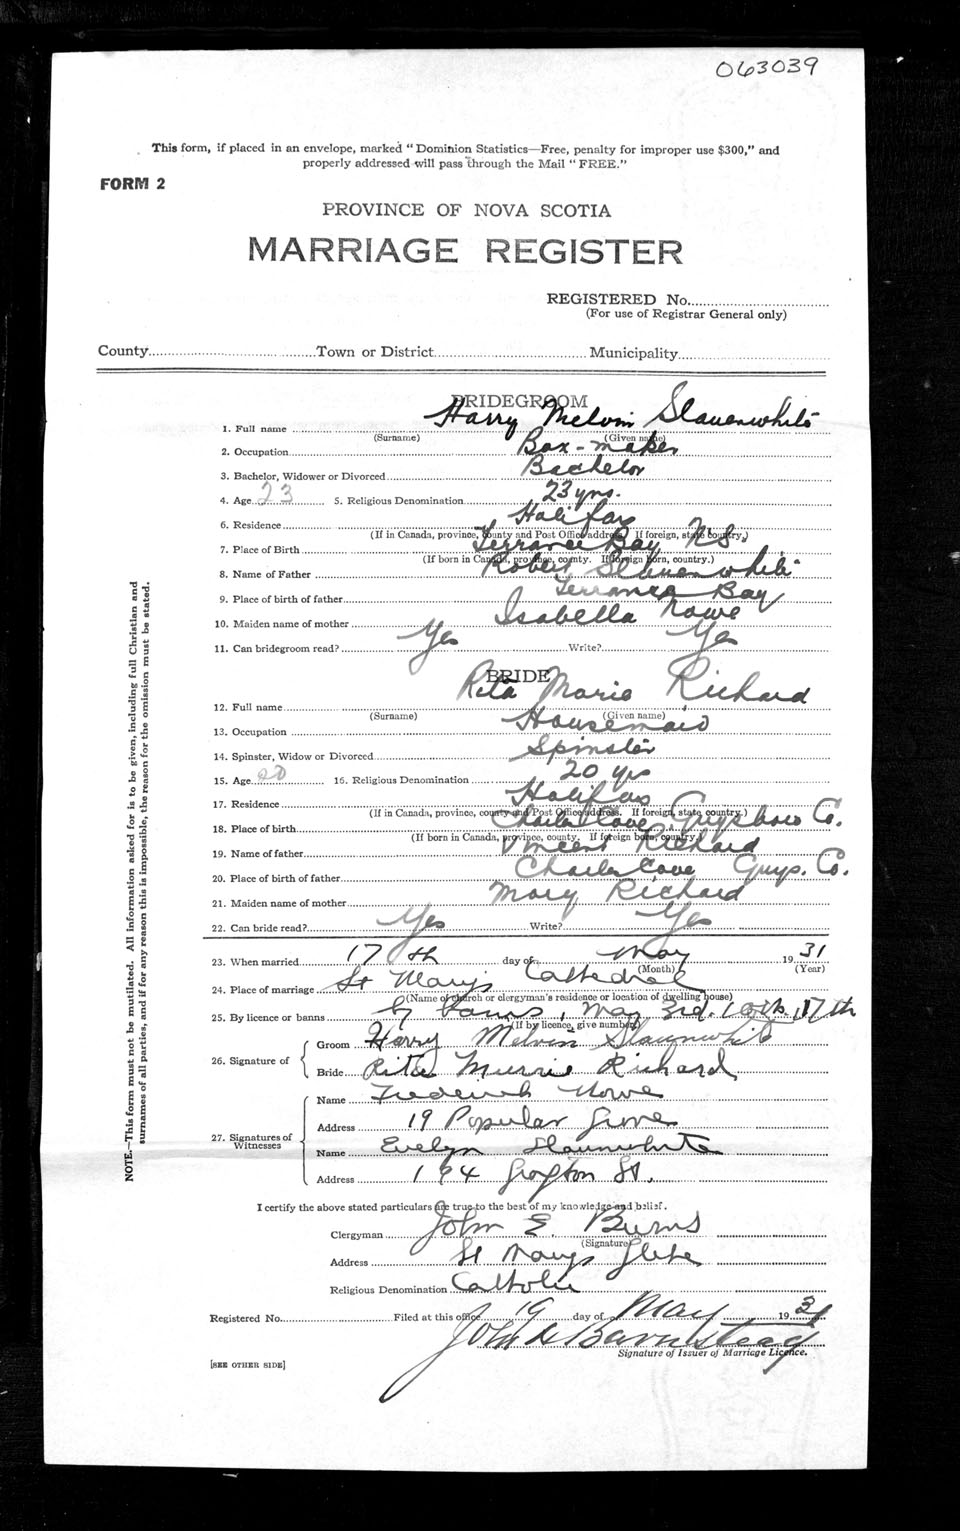 063039
This form, if placed in an envelope, marked "Dominion Statistics—Free, penalty for improper use $300," and
properly addressed will pass through the Mail "FREE."
FORM 2
PROVINCE OF NOVA SCOTIA
MARRIAGE REGISTER
REGISTERED No.
(For use of Registrar General only)
County Town or District Municipality
BRIDEGROOM
1. Full name Harry Melvin Slauenwhite
(Surname) (Given name)
2. Occupation Box-maker
3. Bachelor, Widower or Divorced Bachelor
4. Age 23 5. Religious Denomination 23 yrs.
6. Residence Halifax
(If in Canada, province, county and Post Office address. If foreign, state country.)
7. Place of Birth Terrance Bay NS
(If born in Canada, province, county. If foreign born, country.)
8. Name of Father Robert Slauenwhite
9. Place of birth of father Terrance Bay
10. Maiden name of mother Isabella
11. Can bridegroom read? Yes Write? Yes
BRIDE
12. Full name Rita Marie Richard
(Surname) (Given name)
13. Occupation Housemaid
14. Spinster, Widow or Divorced Spinster
15. Age 20 16. Religious Denomination 20 yrs
17. Residence Halifax
(If in Canada, province, county and Post Office address. If foreign, state country.)
18. Place of birth Charles Cove Guysboro Co.
(If born in Canada, province, county. If foreign born, country.)
19. Name of father Vincent Richard
20. Place of birth of father Charles Cove Guys. Co.
21. Maiden name of mother Mary Richard
22. Can bride read? Yes Write? Yes
23. When married 17th day of May 1931
(Month) (Year)
24. Place of marriage St Mary's Cathedral
(Name of church or clergyman's residence or location of dwelling house)
25. By licence or banns By banns, May 3rd, 10th, 17th
(If by licence, give number)
26. Signature of
Groom Harry Melvin Slaunwhite
Bride Rita Murrie Richard
27. Signatures of Witnesses
Name Frederick
Address 19 Popular Grove
Name Evelyn Slaunwhite
Address 194 St.
I certify the above stated particulars are true to the best of my knowledge and belief.
Clergyman John E. Burns
(Signature)
Address St Marys Glebe
Religious Denomination Catholic
Registered No. Filed at this office 19 day of May 1931
John Barnstead
Signature of Issuer of Marriage Licence.
[SEE OTHER SIDE]
NOTE.—This form must not be mutilated. All information asked for is to be given, including full Christian and
surnames of all parties, and if for any reason this is impossible, the reason for the omission must be stated.